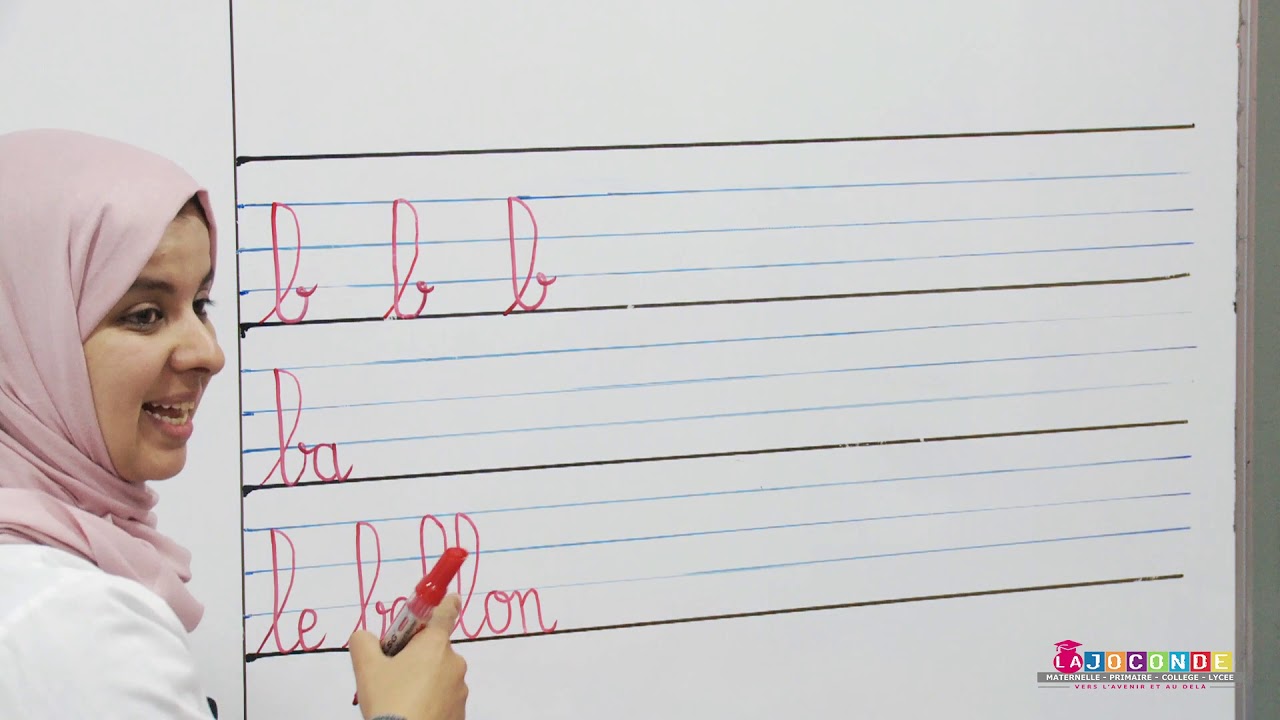 b b b
ba
le ballon
LA JOCONDE
MATERNELLE - PRIMAIRE - COLLEGE - LYCEE
VERS L'AVENIR ET AU DELÀ